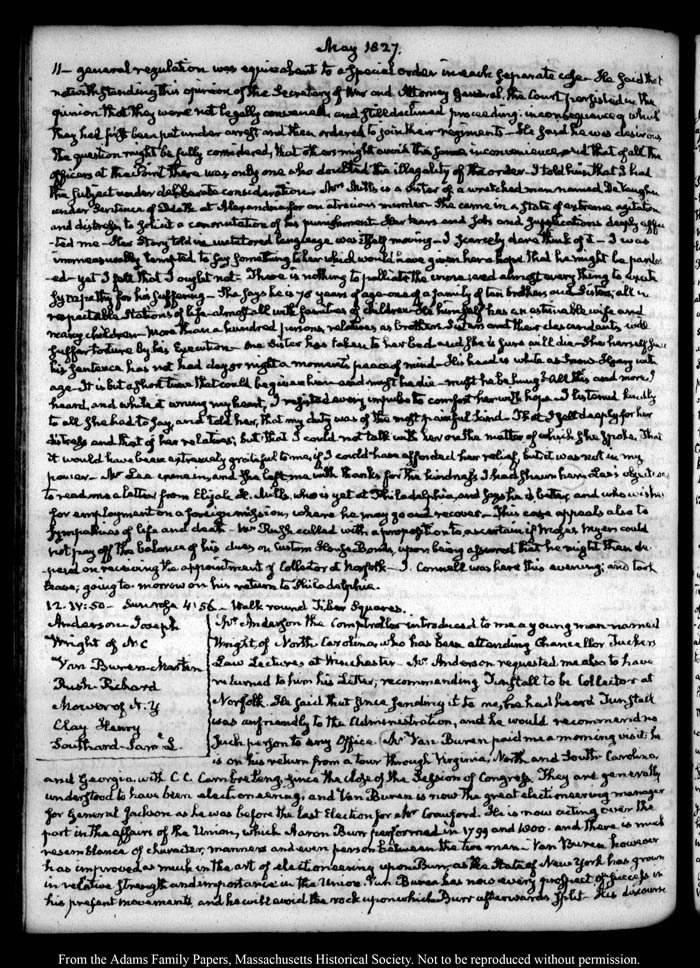 May 1827.
11— general regulation was equivalent to a special order in each separate case— He said that
notwithstanding this opinion of the Secretary of War and Attorney General, the Court persisted in the
opinion that they were not legally convened, and still declined proceeding; in consequence of which
they had first been put under arrest and then ordered to join their regiments— He said he was desirous
the question might be fully considered, that others might avoid the same inconvenience, and that of all the
officers at the Point there was only one who doubted the illegality of the order— I told him that I had
the subject under deliberate consideration. Mrs. Mills is a sister of a wretched man named De Vaughn
under Sentence of Death at Alexandria for an atrocious murder. She came in a state of extreme agitation
and distress, to solicit a commutation of his punishment. Her tears and sobs and supplications deeply affec
-ted me— Her story told in untutored language was itself moving— I scarcely dare think of it— I was
immeasurably tempted to say something to her which would have given her a hope that he might be pardon
-ed— yet I felt that I ought not. There is nothing to palliate the crime; and almost every thing to excite
sympathy for his suffering— She says he is 70 years of age— one of a family of ten brothers and Sisters, all in
respectable stations of life— almost all with families of children. He himself has an estimable wife and
many children— more than a hundred persons, relatives as brothers Sisters and their descendants, will
suffer torture by his Execution— One Sister has taken to her bed and she is sure will die— She herself since
his sentence has not had day or night a moment's peace of mind— His head is white as snow— Hoary with
age— It is but a short time that could be given him— and must he die— must he be hung? All this and more I
heard, and while it wrung my heart, I resisted every impulse to comfort her with hope— I listened kindly
to all she had to say, and told her, that my duty was of the most painful kind— That I felt deeply for her
distress and that of her relatives; but that I could not talk with her on the matter of which she spoke. That
it would have been extremely grateful to me, if I could have afforded her relief, but it was not in my
power— Mr Lee came in, and she left me with thanks for the kindness I had shewn her. Lee's object was
to read me a letter from Elijah H. Mills, who is yet at Philadelphia, and says he is better, and who wishes
for employment on a foreign mission, where he may go and recover— This case appeals also to
sympathies of life and death— Mr Rush called with a proposition to ascertain if Moses Myers could
not pay off the balance of his dues on Custom House Bonds, upon being assured that he might then de-
pend on receiving the appointment of Collector at Norfolk— J. Connell was here this evening; and took
leave; going to-morrow on his return to Philadelphia.
12. IV:50— Sun rose 4:56— Walk round Tiber Squares.
Anderson Joseph
Wright of N.C
Van Buren Martin
Rush Richard
Mower of N.Y
Clay Henry
Southard Saml. L.
Mr. Anderson the Comptroller introduced to me a young man named
Wright, of North Carolina, who has been attending Chancellor Tucker's
Law Lectures at Winchester. Mr. Anderson requested me also to have
returned to him his Letter, recommending Tunstall to be Collector at
Norfolk. He said that since sending it to me, he had heard Tunstall
was unfriendly to the Administration, and he would recommend no
such person to any Office. Mr Van Buren paid me a morning visit. he
is on his return from a tour through Virginia, North and South Carolina,
and Georgia, with C. C. Cambreleng, since the close of the Session of Congress. They are generally
understood to have been electioneering; and Van Buren is now the great electioneering manager
for General Jackson as he was before the last Election for Mr Crawford. He is now acting over the
part in the affairs of the Union, which Aaron Burr performed in 1799 and 1800. and there is much
resemblance of character, manners and even person between the two men— Van Buren however
has improved as much in the art of electioneering upon Burr, as the State of New York has grown
in relative strength and importance in the Union. Van Buren has now every prospect of success in
his present movements, and he will avoid the rock upon which Burr afterwards split. His discourse
From the Adams Family Papers, Massachusetts Historical Society. Not to be reproduced without permission.